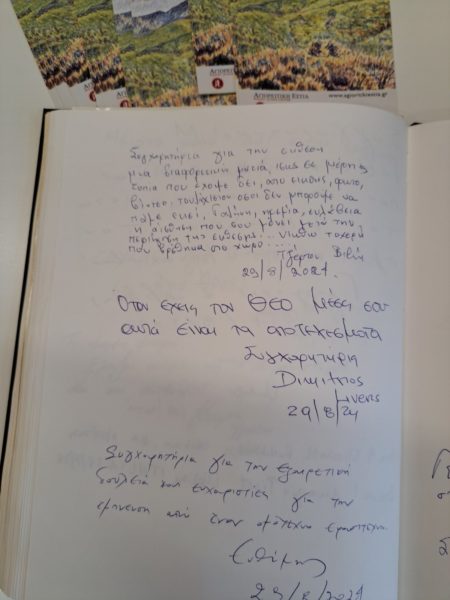 ΑΓΙΟΡΕΙΤΙΚΗ ΕΣΤΙΑ
www.agioritikiestia.gr
Συγχαρητήρια για την έκθεση
μια διαφορετική ματιά, ίσως σε μέρη
τοπία που έχουμε δει, από εικόνες, φωτο,
βίντεο, τουλάχιστον όσοι δεν μπορούμε να
πάμε εκεί, γαλήνη, ηρεμία, ευλάβεια
η αίσθηση που σου μένει μετά την
περιήγηση της έκθεσης... Νιώθω τυχερή
που βρέθηκα στο χώρο.....
29/8/2024.
Όταν έχεις τον ΘΕΟ μέσα σου
αυτά είναι τα αποτελέσματα
Συγχαρητήρια
Dimitrios
29/8/24
Συγχαρητήρια για την εξαιρετική
δουλειά και ευχαριστίες για την
έμπνευση από έναν ομότεχνο ερασιτέχνη
29/8/2024